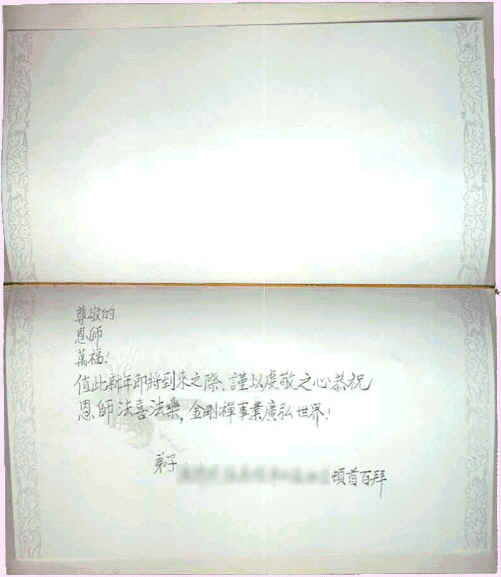 尊敬的
恩師
萬福！
值此新年即將到來之際、謹以虔敬之心恭祝
恩師法喜法樂，金剛禪事業廣弘世界！
弟子 頓首百拜